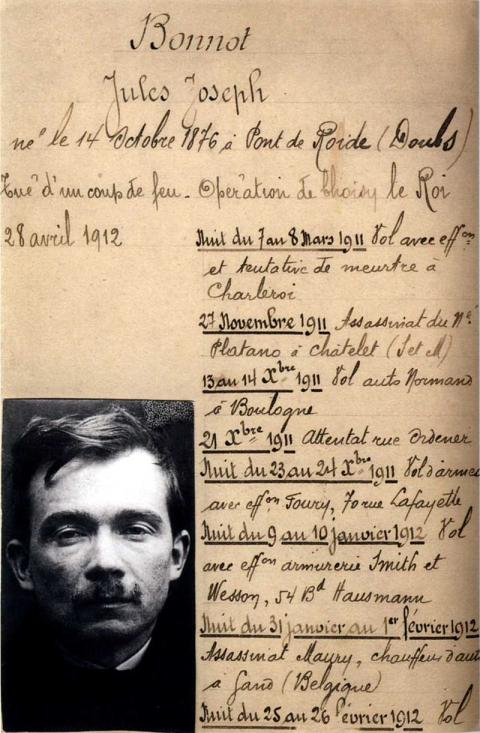 Bonnot
Jules Joseph
né le 14 Octobre 1876 à Pont de Roide (Doubs)
Tué d'un coup de feu. Opération de Choisy le Roi
28 avril 1912
Nuit du 7 au 8 Mars 1911 Vol avec effon
et tentative de meurtre à
Charleroi
27 Novembre 1911 Assassinat du Né
Platano à Châtelet (S et M)
13 au 14 Xbre 1911 Vol auto Normand
à Boulogne
21 Xbre 1911 Attentat rue Ordener
Nuit du 23 au 24 Xbre 1911 Vol d'armes
avec effon Foury, 70 rue Lafayette
Nuit du 9 au 10 janvier 1912 Vol
avec effon armurerie Smith et
Wesson, 54 Bd Hausmann
Nuit du 31 janvier au 1er février 1912
Assassinat Maury, chauffeur d'auto
à Gand (Belgique)
Nuit du 25 au 26 février 1912 Vol